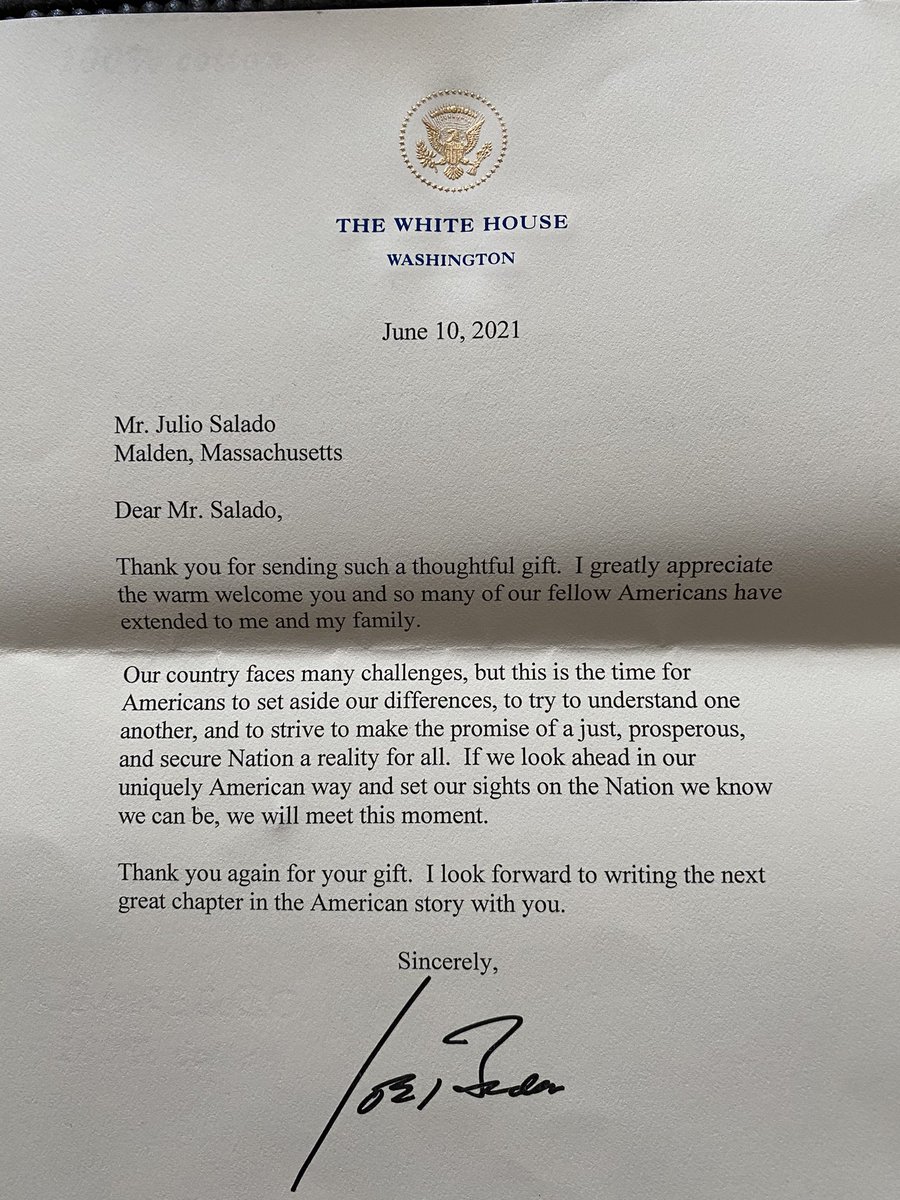 THE WHITE HOUSE
WASHINGTON
June 10, 2021
Mr. Julio Salado
Malden, Massachusetts
Dear Mr. Salado,
Thank you for sending such a thoughtful gift.  I greatly appreciate
the warm welcome you and so many of our fellow Americans have
extended to me and my family.
Our country faces many challenges, but this is the time for
Americans to set aside our differences, to try to understand one
another, and to strive to make the promise of a just, prosperous,
and secure Nation a reality for all.  If we look ahead in our
uniquely American way and set our sights on the Nation we know
we can be, we will meet this moment.
Thank you again for your gift.  I look forward to writing the next
great chapter in the American story with you.
Sincerely,
Joe Biden